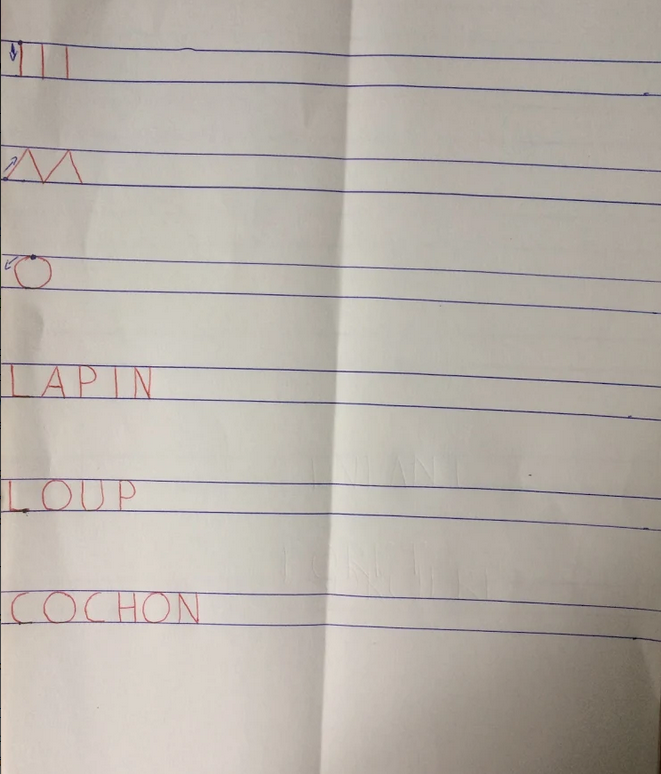 LAPIN
LOUP
COCHON